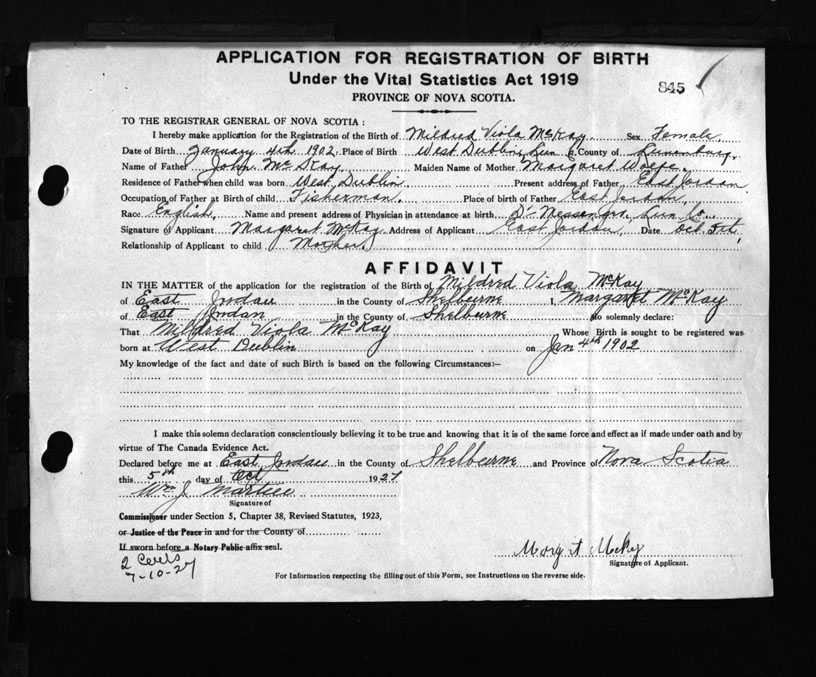 APPLICATION FOR REGISTRATION OF BIRTH
Under the Vital Statistics Act 1919
845
PROVINCE OF NOVA SCOTIA.
TO THE REGISTRAR GENERAL OF NOVA SCOTIA :
I hereby make application for the Registration of the Birth of Mildred Viola McKay. Sex Female.
Date of Birth January 4th 1902. Place of Birth West Dublin, Lun Co. County of Lunenburg.
Name of Father John McKay. Maiden Name of Mother Margaret
Residence of Father when child was born West Dublin. Present address of Father East Jordan
Occupation of Father at Birth of child Fisherman. Place of birth of Father East Jordan.
Race English. Name and present address of Physician in attendance at birth. Dr Lun Co.
Signature of Applicant Margaret McKay Address of Applicant East Jordan. Date Oct. 5th
Relationship of Applicant to child Mother.
AFFIDAVIT
IN THE MATTER of the application for the registration of the Birth of Mildred Viola McKay
of East Jordan in the County of Shelburne I, Margaret McKay
of East Jordan in the County of Shelburne do solemnly declare:
That Mildred Viola McKay Whose Birth is sought to be registered was
born at West Dublin on Jan 4th 1902
My knowledge of the fact and date of such Birth is based on the following Circumstances:—
I make this solemn declaration conscientiously believing it to be true and knowing that it is of the same force and effect as if made under oath and by
virtue of The Canada Evidence Act.
Declared before me at East Jordan in the County of Shelburne and Province of Nova Scotia
this 5th day of Oct 1927
Wm J.
Signature of
Commissioner under Section 5, Chapter 38, Revised Statutes, 1923,
or Justice of the Peace in and for the County of
If sworn before a Notary Public affix seal.
Margt McKay
Signature of Applicant.
2 Certs
7-10-27
For Information respecting the filling out of this Form, see Instructions on the reverse side.